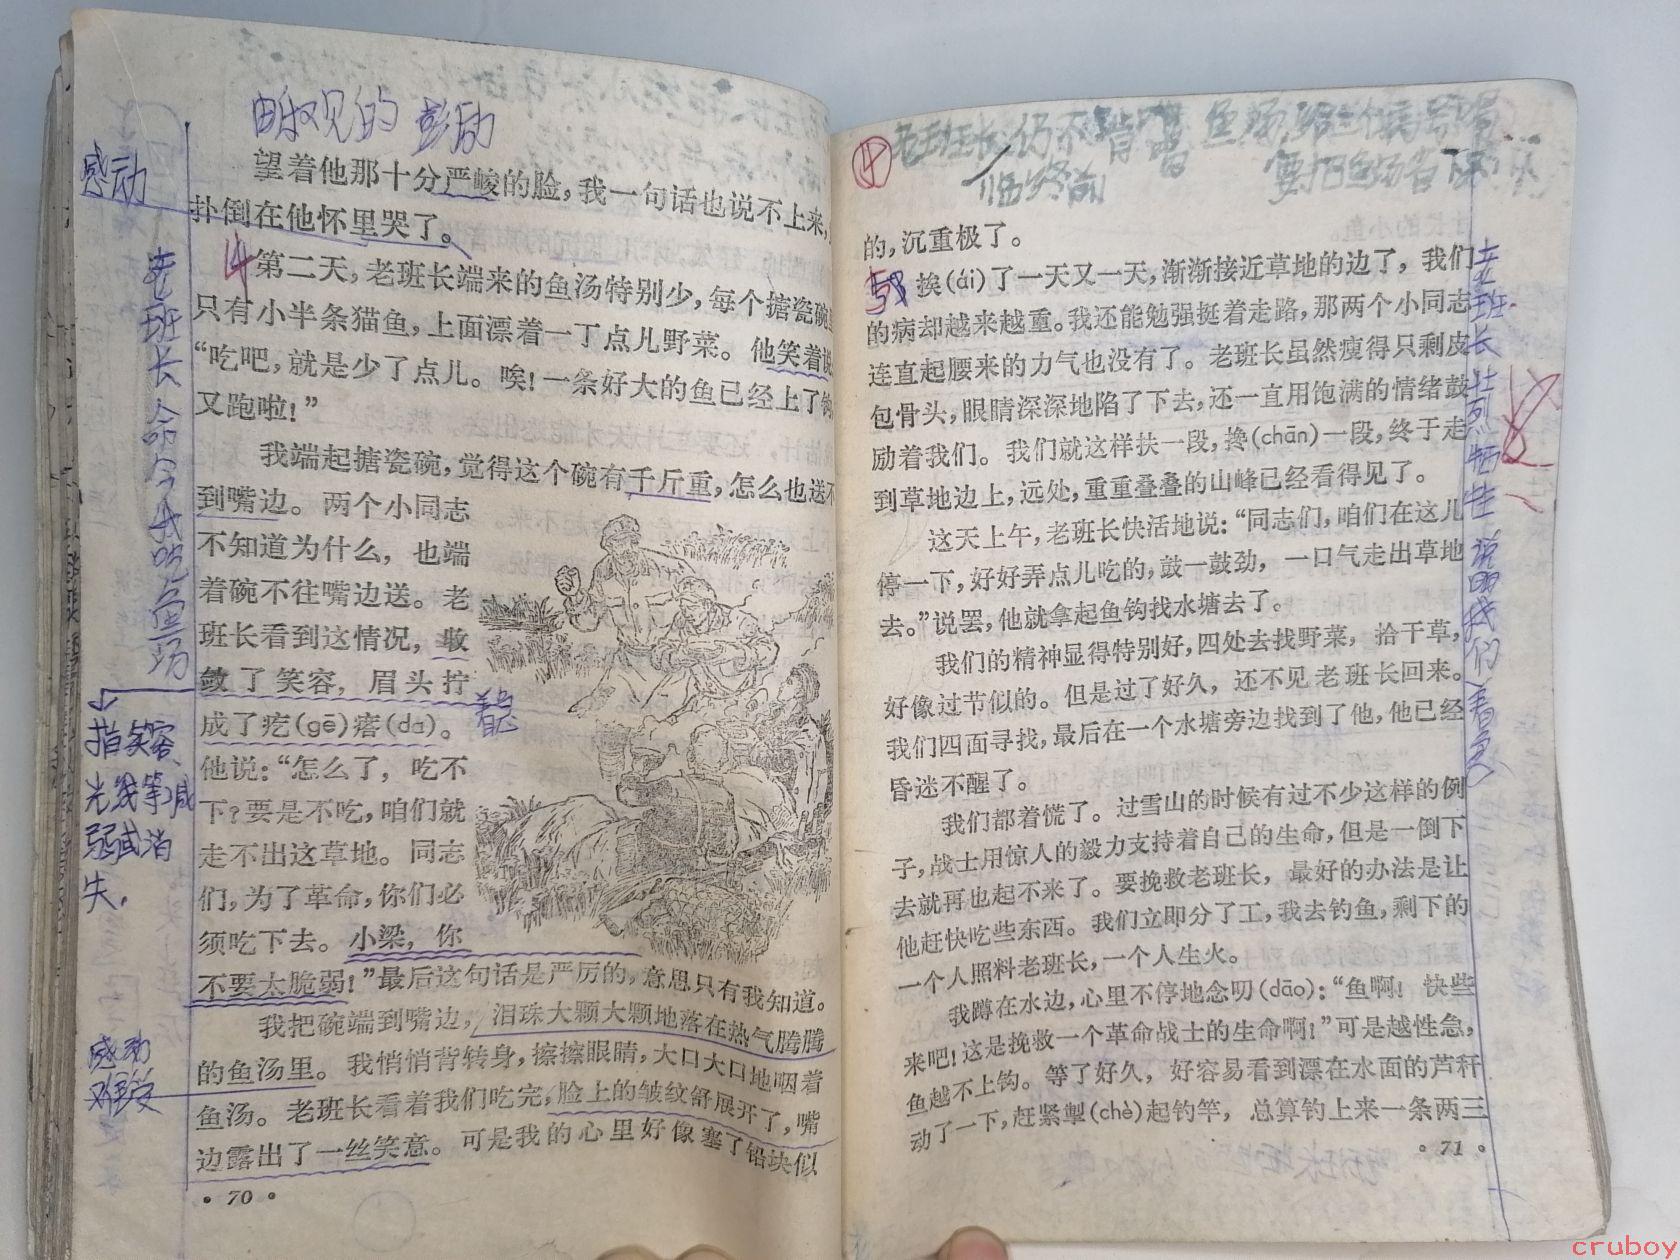 感动
望着他那十分严峻的脸，我一句话也说不上来，
扑倒在他怀里哭了。
老班长命令我吃鱼汤
第二天，老班长端来的鱼汤特别少，每个搪瓷碗
只有小半条猫鱼，上面漂着一丁点儿野菜。他笑着说
“吃吧，就是少了点儿。唉！一条好大的鱼已经上了钩
又跑啦！”
我端起搪瓷碗，觉得这个碗有千斤重，怎么也送不
到嘴边。两个小同志
不知道为什么，也端
着碗不往嘴边送。老
班长看到这情况，收
敛了笑容，眉头拧
着急
成了疙(gē)瘩(da)。
指笑容、
光线等减
弱或消
失.
他说：“怎么了，吃不
下？要是不吃，咱们就
走不出这草地。同志
们，为了革命，你们必
须吃下去。小梁，你
不要太脆弱！”最后这句话是严厉的，意思只有我知道。
我把碗端到嘴边，泪珠大颗大颗地落在热气腾腾
感动
难受
的鱼汤里。我悄悄背转身，擦擦眼睛，大口大口地咽着
鱼汤。老班长看着我们吃完，脸上的皱纹舒展开了，嘴
边露出了一丝笑意。可是我的心里好像塞了铅块似
·70·
④老班长仍不肯喝鱼汤
临终前
的，沉重极了。
挨(ái)了一天又一天，渐渐接近草地的边了，我们
的病却越来越重。我还能勉强挺着走路，那两个小同志
连直起腰来的力气也没有了。老班长虽然瘦得只剩皮
包骨头，眼睛深深地陷了下去，还一直用饱满的情绪鼓
励着我们。我们就这样扶一段，搀(chān)一段，终于走
到草地边上，远处，重重叠叠的山峰已经看得见了。
老班长壮烈牺牲
这天上午，老班长快活地说：“同志们，咱们在这儿
停一下，好好弄点儿吃的，鼓一鼓劲，一口气走出草地
去。”说罢，他就拿起鱼钩找水塘去了。
我们的精神显得特别好，四处去找野菜，拾干草，
好像过节似的。但是过了好久，还不见老班长回来。
我们四面寻找，最后在一个水塘旁边找到了他，他已经
昏迷不醒了。
我们都着慌了。过雪山的时候有过不少这样的例
子，战士用惊人的毅力支持着自己的生命，但是一倒下
去就再也起不来了。要挽救老班长，最好的办法是让
他赶快吃些东西。我们立即分了工，我去钓鱼，剩下的
一个人照料老班长，一个人生火。
我蹲在水边，心里不停地念叨(dāo)：“鱼啊！快些
来吧！这是挽救一个革命战士的生命啊！”可是越性急，
鱼越不上钩。等了好久，好容易看到漂在水面的芦秆
动了一下，赶紧掣(chè)起钓竿，总算钓上来一条两三
·71·
cruboy